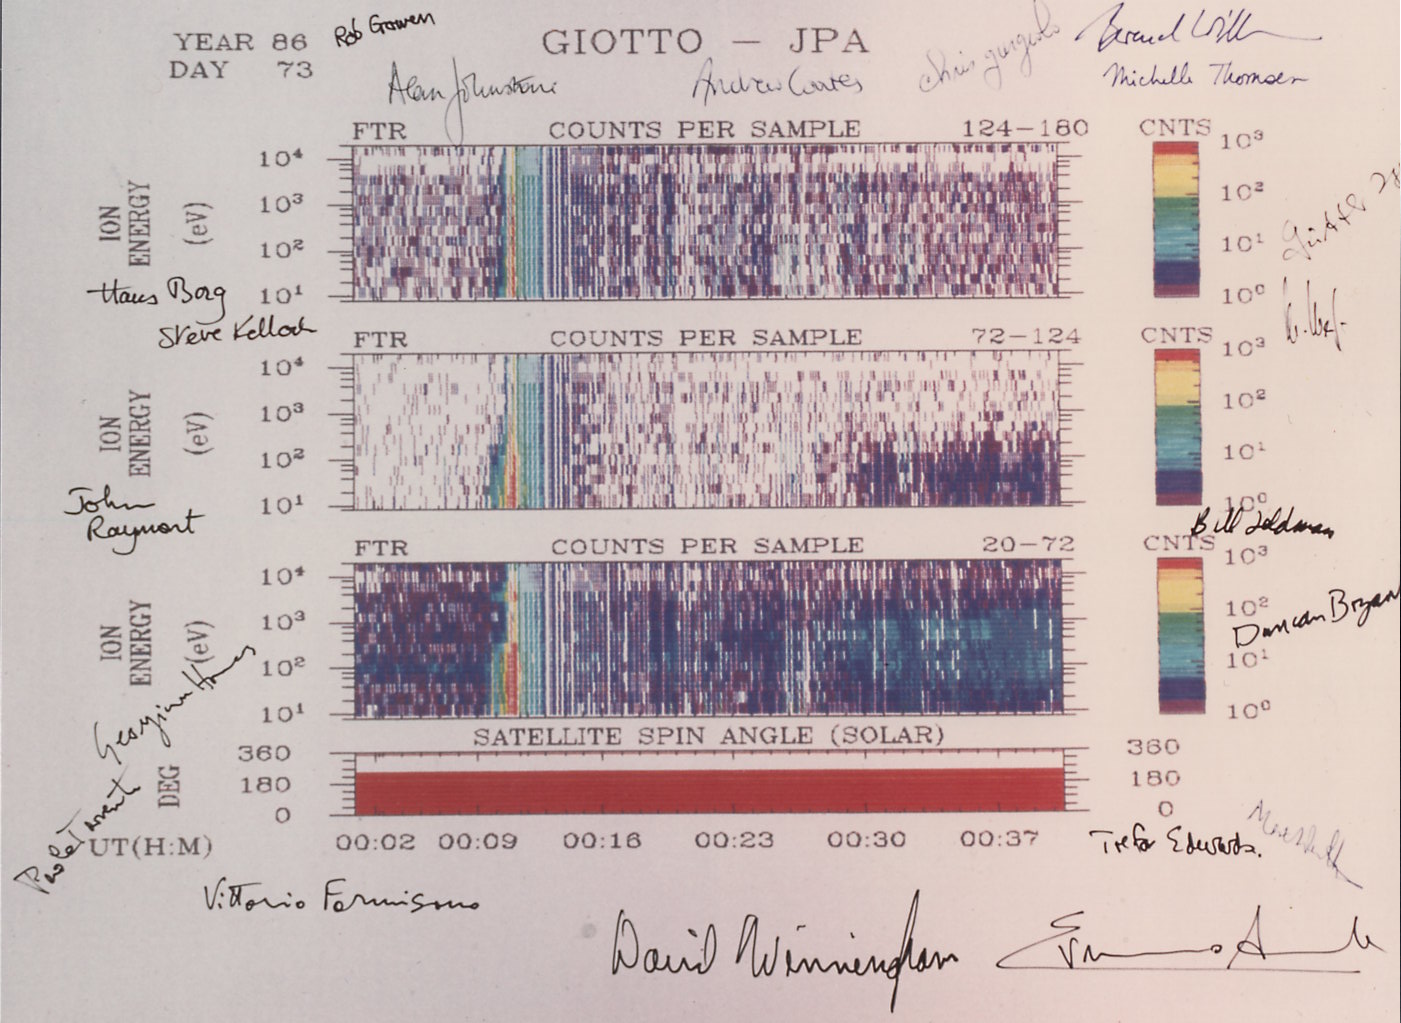 YEAR 86
DAY 73
Rob Gowen
GIOTTO – JPA
Alan Johnstone
Andrew Coates
Chris
Michelle Thomsen
FTR COUNTS PER SAMPLE 124–180 CNTS
10⁴
10³
10²
10¹
ION ENERGY (eV)
10³
10²
10¹
10⁰
Hans Borg
Steve Kellock
FTR COUNTS PER SAMPLE 72–124 CNTS
10⁴
10³
10²
10¹
ION ENERGY (eV)
10³
10²
10¹
10⁰
John
Raymont
Bill
FTR COUNTS PER SAMPLE 20–72 CNTS
10⁴
10³
10²
10¹
ION ENERGY (eV)
10³
10²
10¹
10⁰
Duncan Bryant
SATELLITE SPIN ANGLE (SOLAR)
360
180
0
DEG
360
180
0
UT(H:M) 00:02 00:09 00:16 00:23 00:30 00:37
Trefor Edwards.
Vittorio Formisano
David Winningham